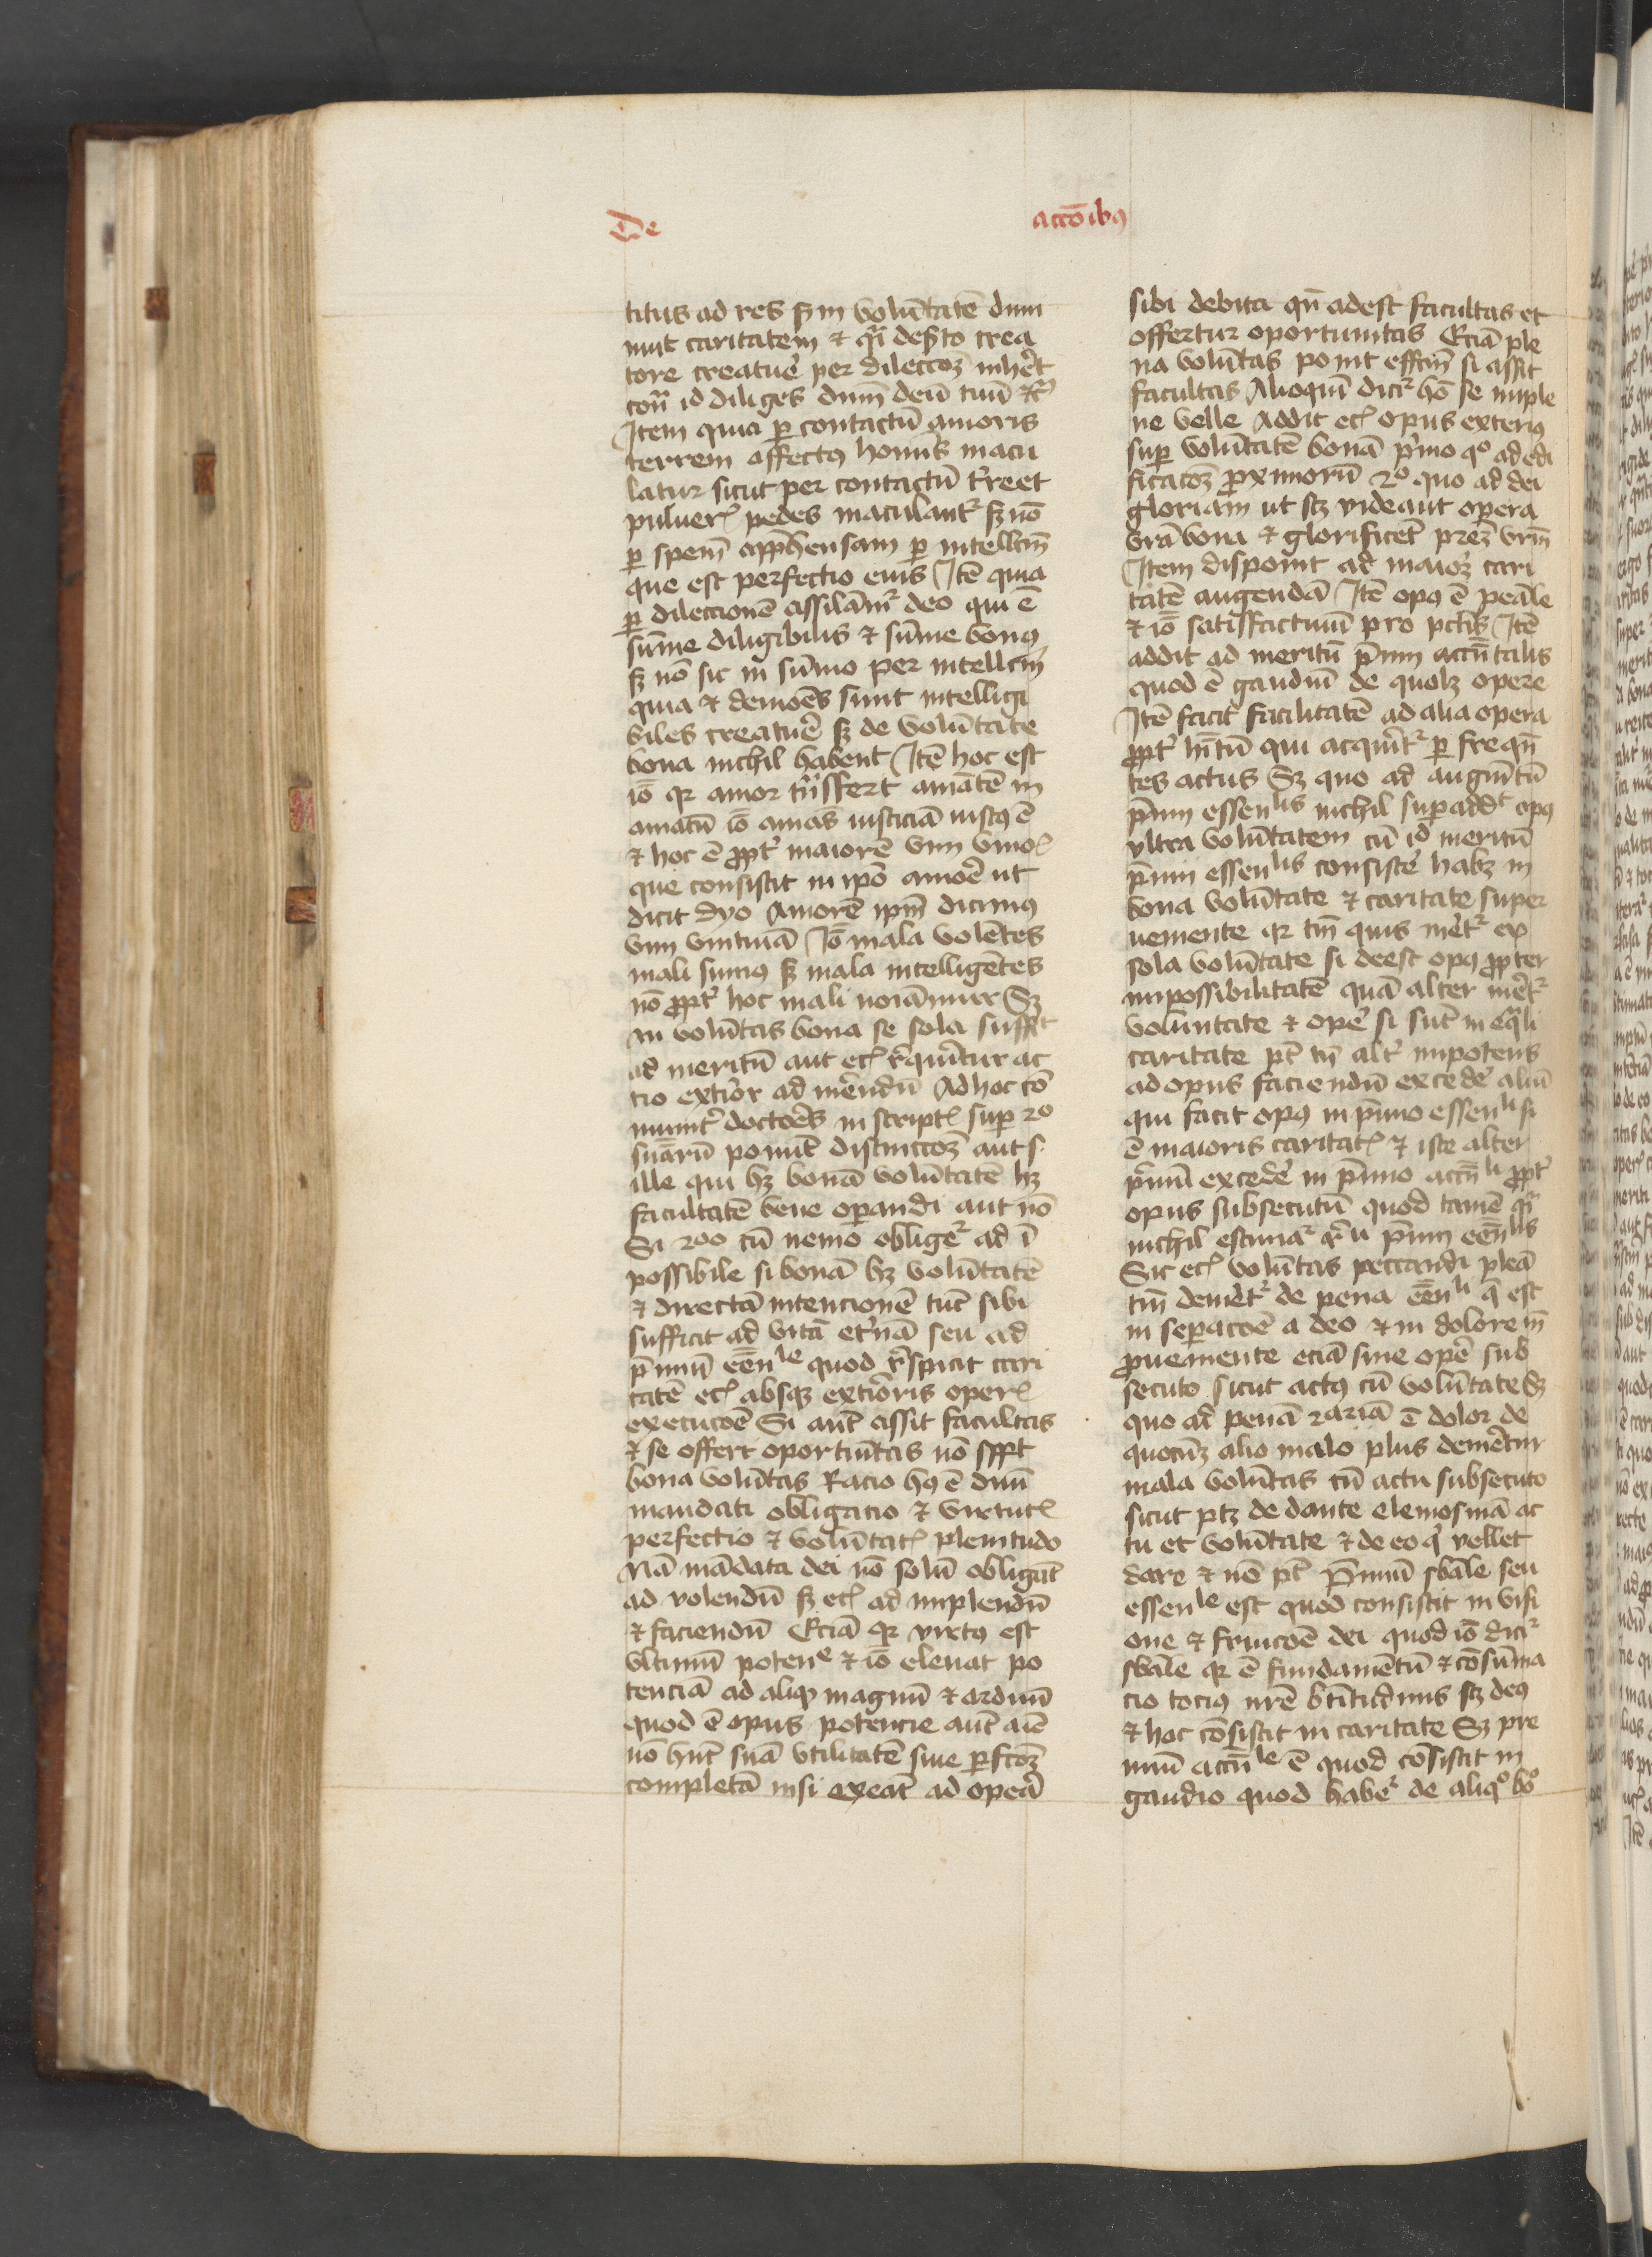 De accōibꝰ
titus ad res sꝫ in volūtatē dim
nuit caritatem ⁊ qͥ desto crea
tore creatuē per dileccōꝫ inhēt
cōn̄ id diliges dnm̄ deū tuū ⁊cͣ
Item quia ꝑ contactū amoris
terrem affectꝰ hoīnis macu
latur sicut per contactū t̄re et
puluerꝭ pedes maculant᷑ sꝫ nō
ꝑ spem̄ apphensam ꝑ intellcm̄
que est perfectio eius Itē quia
ꝑ dileccionē assilam᷑ deo qui ē
sūme diligibilis ⁊ sūme bonꝰ
sꝫ nō sic in sūmo per intellcm̄
quia ⁊ demōes sunt intelligi
biles creatuē sꝫ de volūtate
bona nichil habent Itē hoc est
iō qꝛ amor trāsfert amātē in
amatū iō amās iusticiā iustꝰ ē
⁊ hoc ē ꝓpt᷑ maiorē vim vnioꝭ
que consistit in ip̄o amoē ut
dicit dyo Amorē ip̄m dicimꝰ
vim vnitiuā Iō mala volētes
mali sumꝰ sꝫ mala intelligētes
nō ꝓpt᷑ hoc mali noīamur Sꝫ
an volūtas bona se sola suffit
ad meritū aut ecꝭ r̄quiritur ac
tioext̄ior ad mēndū Ad hoc cō
munit᷑ doctoēs in scriptꝭ suꝑ 2º
suaꝝ ponūt distinccōꝫ aut s·
ille qui hꝫ bonā volūtatē hꝫ
facultatē bene oꝑandi aut nō
Si 2ºº cū nemo obliget᷑ ad ī
possibile si bonā hꝫ volūtatē
⁊ directā intencionē tūc sibi
sufficit ad vitā et̄nā seu ad
p̄miū eēnˡᵉ quod r̄spicit cari
tatē ecꝭ absqꝫ ext̄ioris operꝭ
execucōe Si aūt assit facultas
⁊ se offert oportuītas nō sffit
bona volūtas Racio hꝰ ē diui
mandati obligacio ⁊ virtutꝭ
perfectio ⁊ volūtatꝭ plenitudo
Nā mādata dei nō solū obligāt
ad volendū sꝫ ecꝭ ad implendū
⁊ faciendū Eciā qꝛ virtꝰ est
vltimū potenᵉ ⁊ iō eleuat po
tenciā ad aliqͩ magnū ⁊ arduū
quod ē opus potencie aūt aīe
nō hn̄t suā vtilitatē siue ꝑfcōꝫ
completā nisi exeāt ad opeā
sibi debita qn̄ adest facultas et
offertur oportunitas Eciā ple
na volūtas ponit effcm̄ si assit
facultas Alioquī dicit᷑ hō se imple
ne velle Addit ecꝭ opus exteriꝰ
suꝑ volūtatē bonā p̄mo qº ad edi
ficacōꝫ ꝓximorū 2º quo ad dei
gloriam ut scꝫ videant opera
vrā bona ⁊ glorificēt prēꝫ vrm̄
Item disponit ad maiorꝫ cari
tatē augendā Itē opꝰ ē penāle
⁊ iō satisfactiuū pro pctīs Itē
addit ad meritū p̄mii accn̄talis
quod ē gaudiū de quolꝫ opere
Itē facit facilitatē ad alia opera
ꝓpt᷑ hītū qui acquirit᷑ ꝑ freqn̄
tes actus Sꝫ quo ad augmētū
p̄mii essenˡⁱˢ nichil suꝑaddᵗ opꝰ
vltra volūtatem cū id meritū
p̄mii essenˡⁱˢ consistē habꝫ in
bona volūtate ⁊ caritate super
ueniente qꝛ tm̄ quis mēt᷑ ex
sola volūtate si deest opꝰ ꝓpter
impossibilitatē quā alter mēt᷑
voluntate ⁊ opē si sūt in eq̄li
caritate pt̄ tn̄ alt᷑ impotens
ad opus faciendū excedē aliū
qui facit opꝰ in p̄mio essenˡⁱ si
ē maioris caritatꝭ ⁊ iste alter
p̄mū excedē in p̄mio accn̄ˡⁱ ꝓpt᷑
opus subsecutū quod tamē qͣ
nichil estimat᷑ r̄ū p̄mii eēnˡⁱˢ
Sic ecꝭ voluntas peccandi plēā
tm̄ demēt᷑ de pena eēnˡⁱ q̄ est
in seꝑacōe a deo ⁊ in dolore īn
ꝓueniente eciā sine opē sub
secuto sicut actꝰ cū volūtate Sꝫ
quo ad penā 2ariā ē dolor de
quocūꝫ alio malo plus demētur
mala volūtas cū actu subsecuto
sicut ptꝫ de dante elemosinā ac
tu et volūtate ⁊ de eo qͥ vellet
dare ⁊ nō pt̄ P̄miū sbāle seu
essenˡᵉ est quod consistit in visi
one ⁊ fruicōe dei quod iō dicit᷑
sbāle qꝛ ē fundamētū ⁊ cōsūma
cio tociꝰ nr̄e btītudinis scꝫ deꝰ
⁊ hoc cōsistit in caritate Sꝫ pre
miū accn̄ˡᵉ ē quod cōsistit in
gaudio quod habet᷑ de aliqº bº